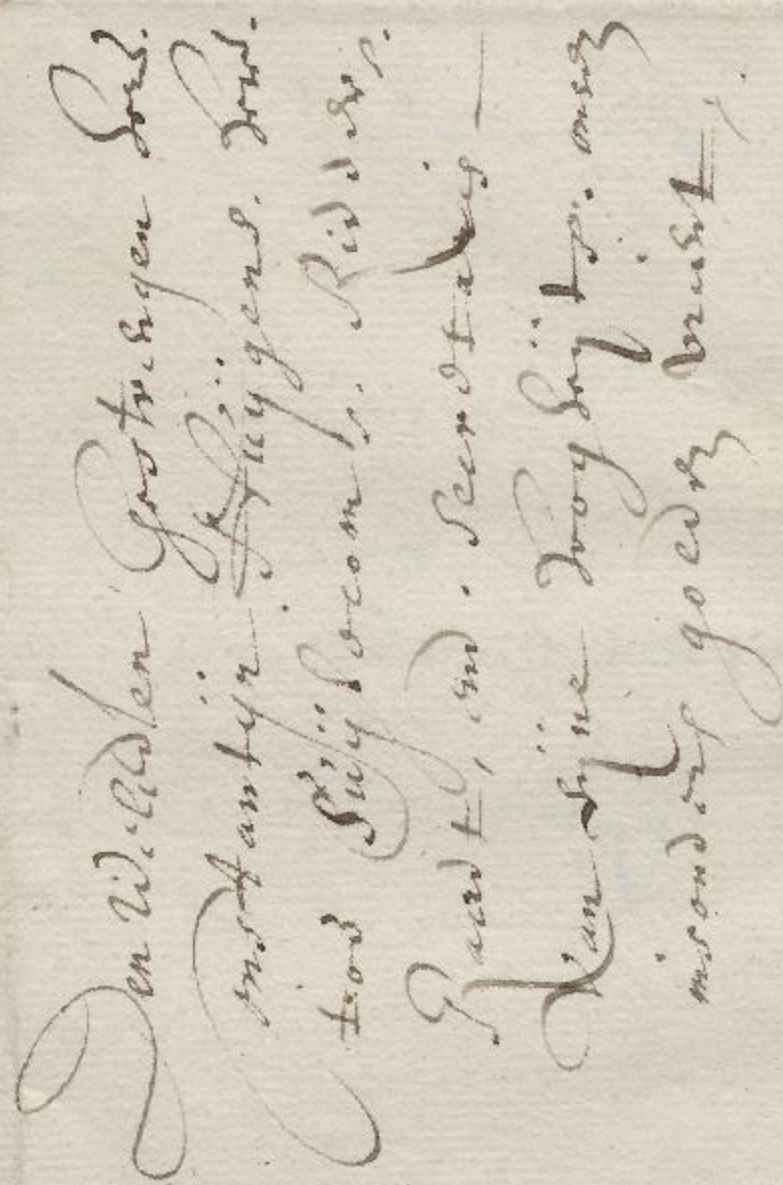 Den Wel Edelen Gestrengen heer.
Constantijn Huijgens. heer.
Van Suijlecom. Ridder.
Raedt, end. Secretaris
Van sijne hoogheijts. onsen
insonders goeden vrient,